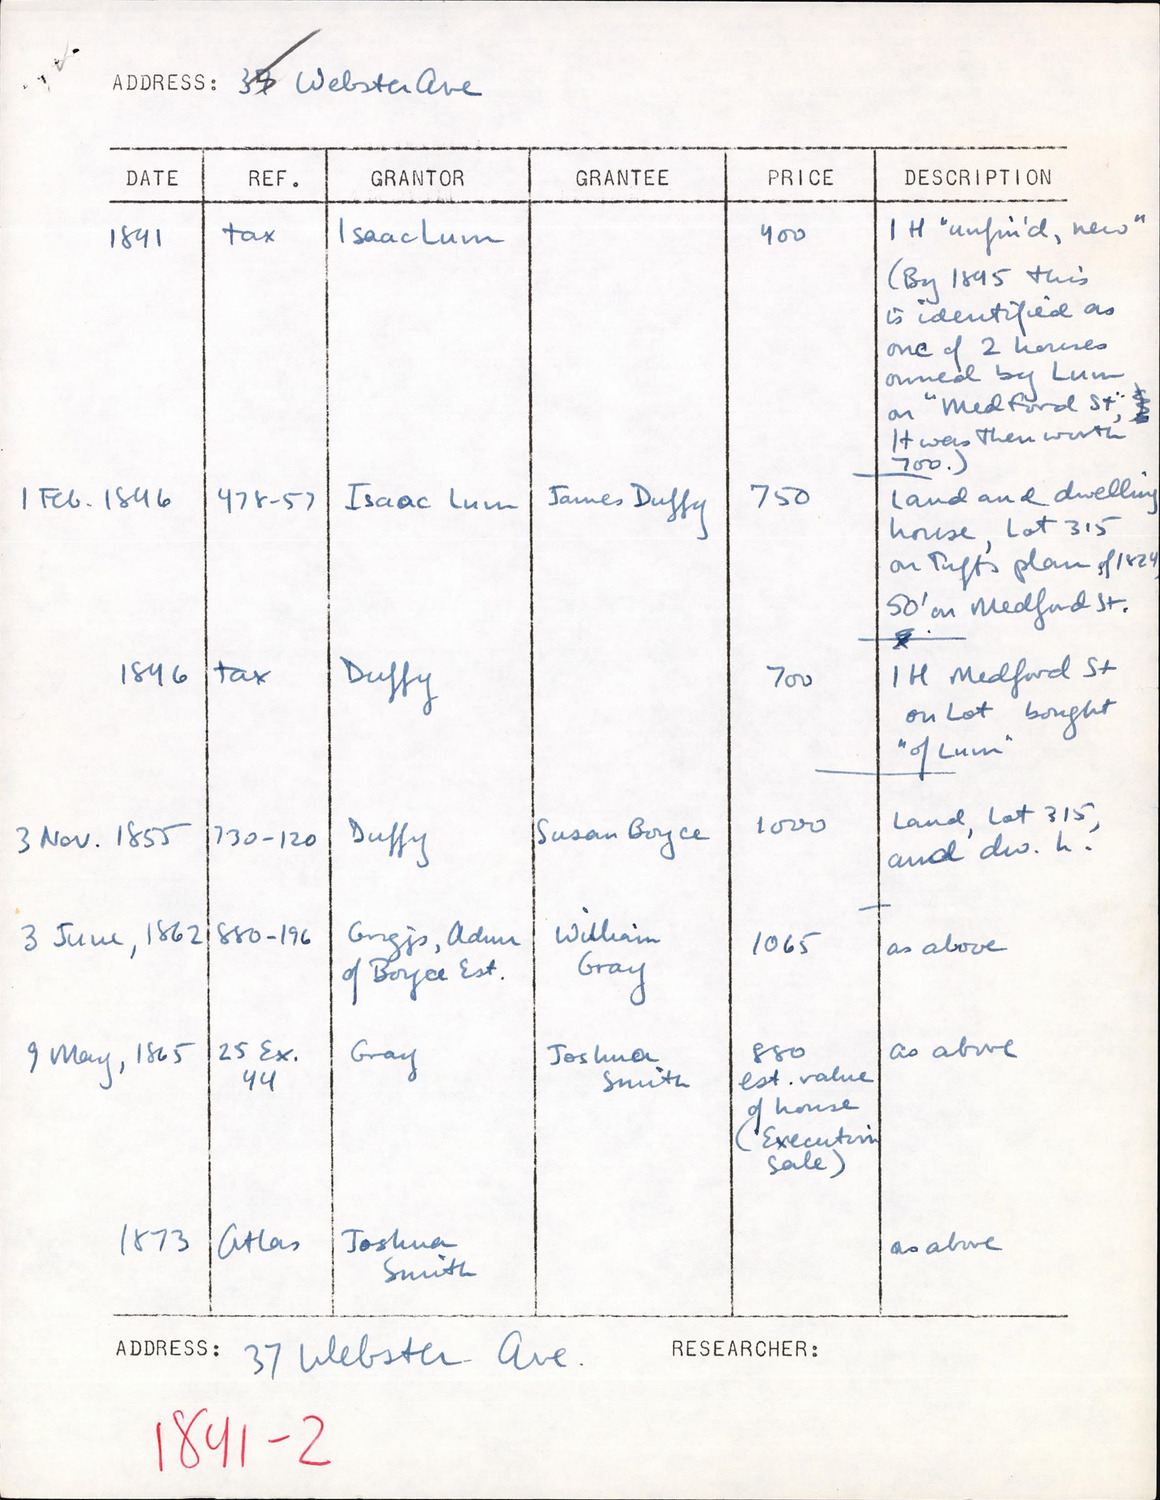 ADDRESS: 37 Webster Ave
DATE REF. GRANTOR GRANTEE PRICE DESCRIPTION
1841 tax Isaac Lum 400 1 H "unfin'd, new"
(By 1845 this
is identified as
one of 2 houses
owned by Lum
on "Medford St",
It was then worth
700.)
1 Feb. 1846 478-57 Isaac Lum James Duffy 750 Land and dwelling
house, Lot 315
on Tufts plan of 1824,
50' on Medford St.
1846 tax Duffy 700 1 H Medford St
on Lot bought
"of Lum"
3 Nov. 1855 730-120 Duffy Susan Boyce 1000 Land, Lot 315,
and dw. h.
3 June, 1862 880-196 Griggs, Adm William 1065 as above
of Boyce Est. Gray
9 May, 1865 25 Ex. Gray Joshua 880 as above
44 Smith est. value
of house
(Execution
sale)
1873 Atlas Joshua as above
Smith
ADDRESS: 37 Webster Ave. RESEARCHER:
1841-2